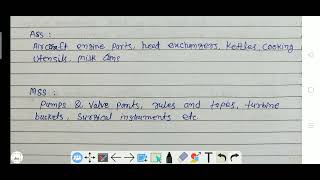 ASS :
Aircraft engine parts, heat exchangers, Kettles, Cooking
utensils, milk Cans
MSS :
Pumps & Valve parts, rules and tapes, turbine
buckets, Surgical instruments etc.